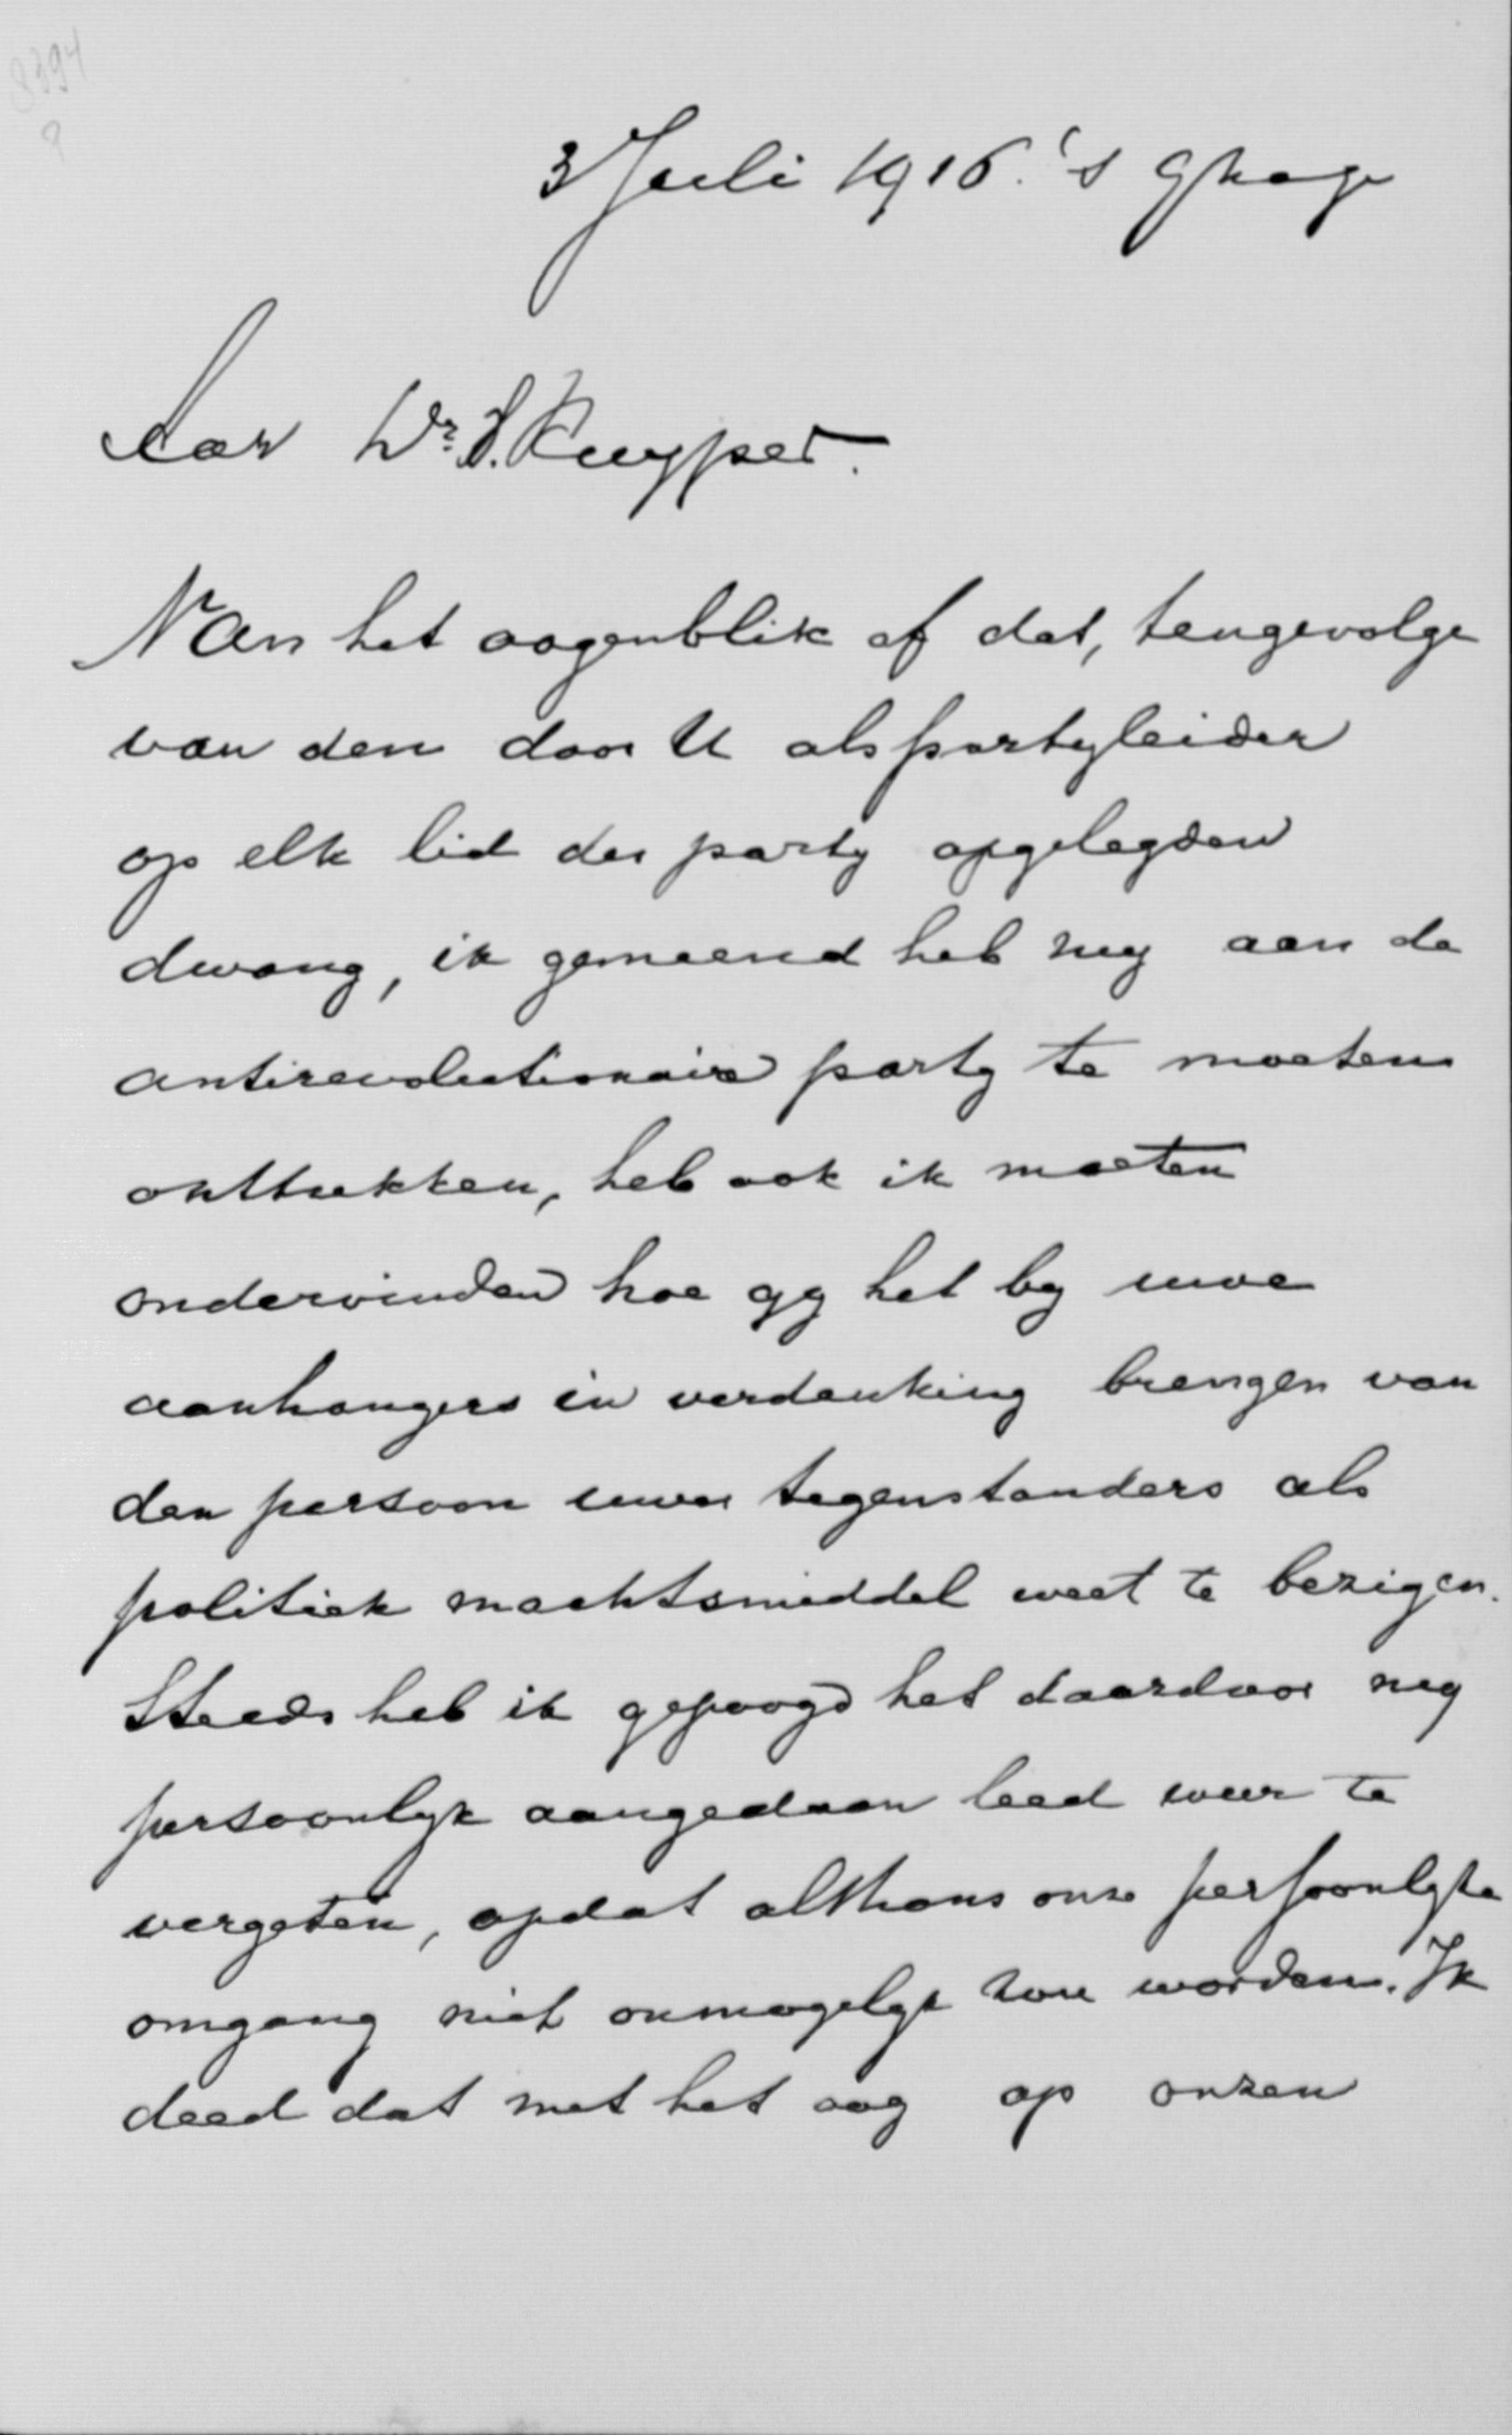 8394
3 Juli 1916. 's Ghage
Aan Dr. A. Kuyper.
Van het oogenblik af dat, tengevolge
van den door U als partyleider
op elk lid der party opgelegden
dwang, ik gemeend heb my aan de
antirevolutionaire party te moeten
onttrekken, heb ook ik moeten
ondervinden hoe gy het by uwe
aanhangers in verdenking brengen van
den persoon uwer tegenstanders als
politiek machtsmiddel weet te bezigen.
Steeds heb ik gepoogd het daardoor my
persoonlyk aangedaan leed weer te
vergeten, opdat althans onze persoonlyke
omgang niet onmogelyk zou worden. Ik
deed dat met het oog op onzen